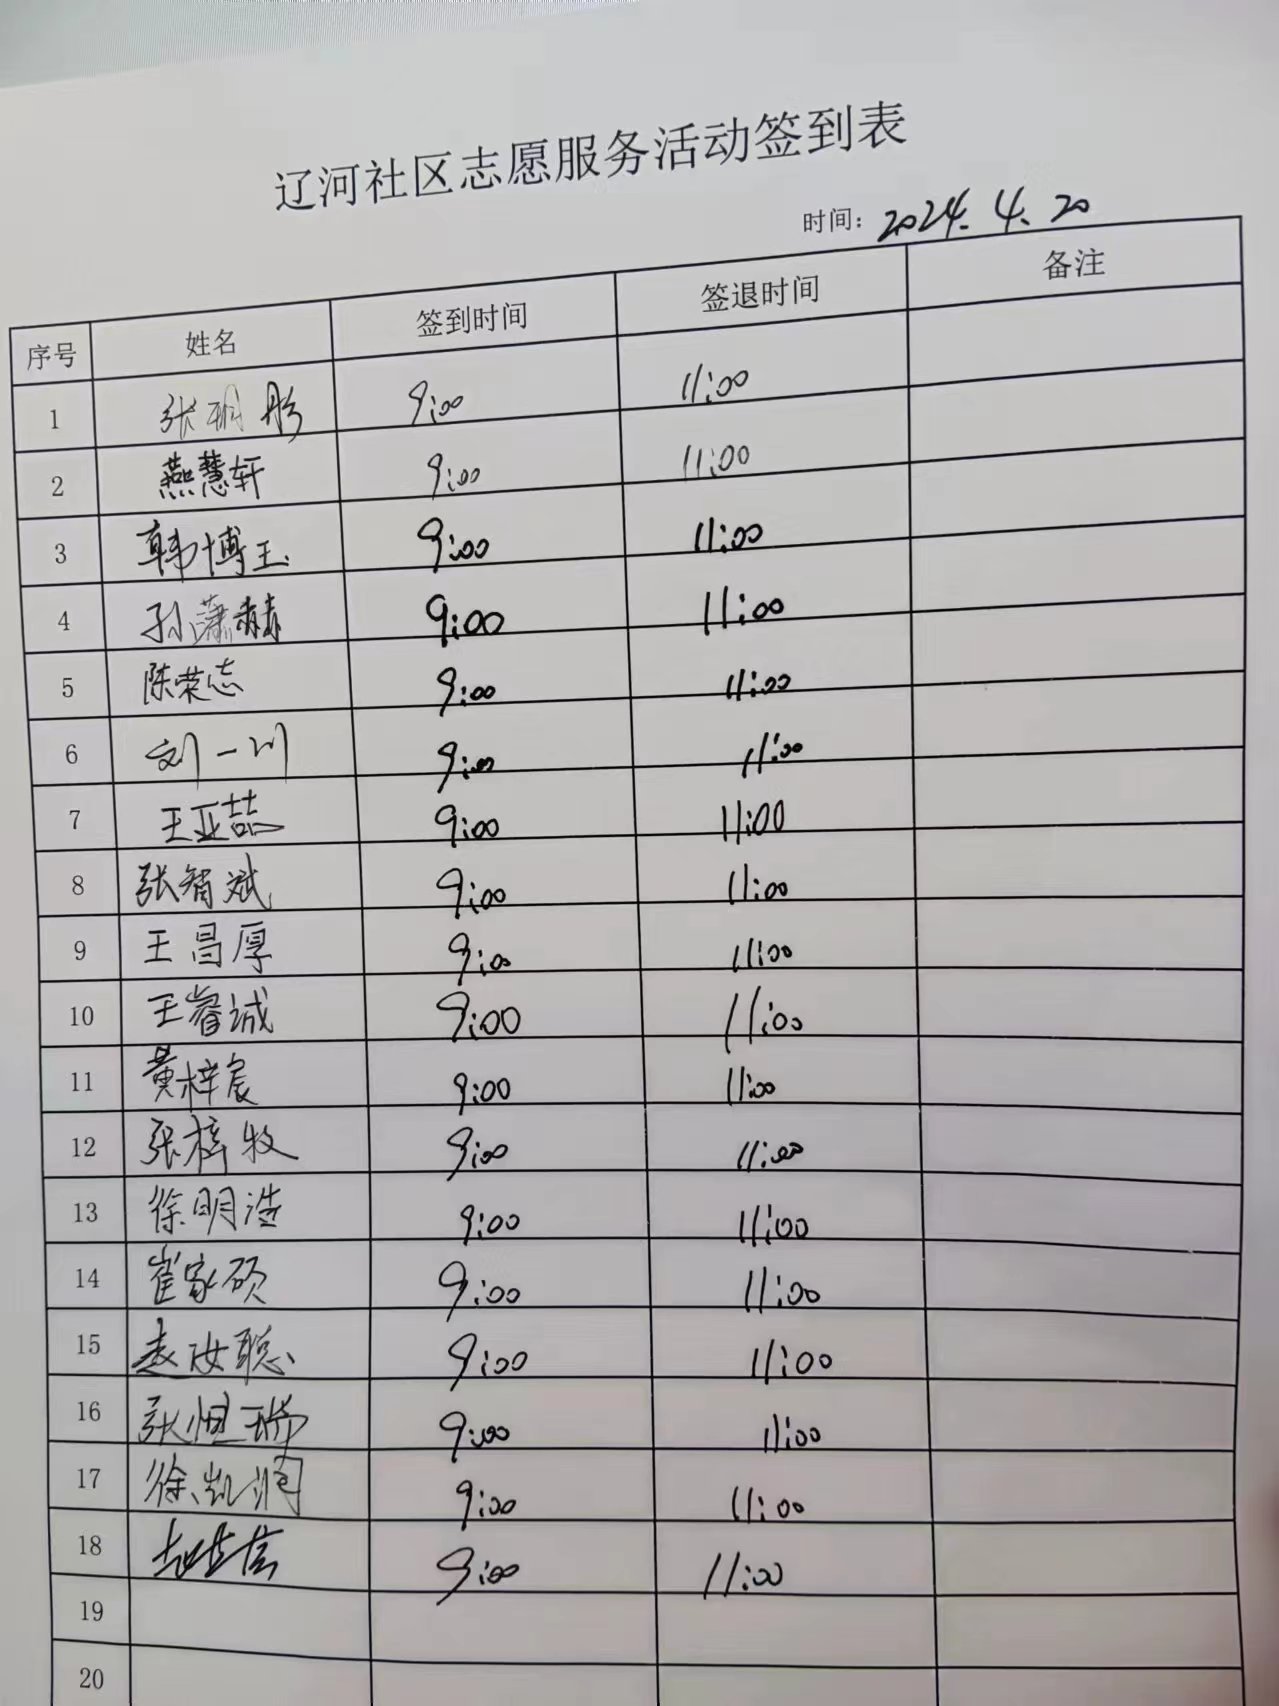 辽河社区志愿服务活动签到表
时间：2024.4.20
序号 姓名 签到时间 签退时间 备注
1 张玥彤 9:00 11:00
2 燕慧轩 9:00 11:00
3 韩博玉 9:00 11:00
4 孙潇赫 9:00 11:00
5 陈荣志 9:00 11:00
6 刘一川 9:00 11:00
7 王亚喆 9:00 11:00
8 张智斌 9:00 11:00
9 王昌厚 9:00 11:00
10 王睿诚 9:00 11:00
11 黄梓宸 9:00 11:00
12 张梓牧 9:00 11:00
13 徐明浩 9:00 11:00
14 崔家硕 9:00 11:00
15 汝聪 9:00 11:00
16 张恒瑞 9:00 11:00
17 徐凯润 9:00 11:00
18 9:00 11:00
19
20